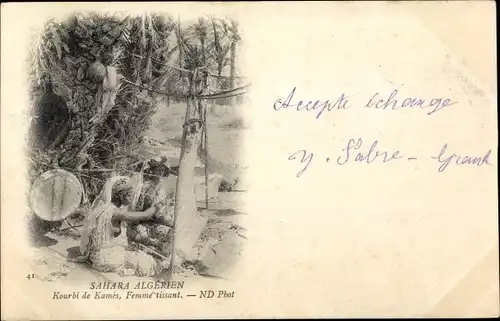 Accepte échange
y. Sabre-Grank
41
SAHARA ALGÉRIEN
Kourbi de Kamès, Femme tissant. — ND Phot